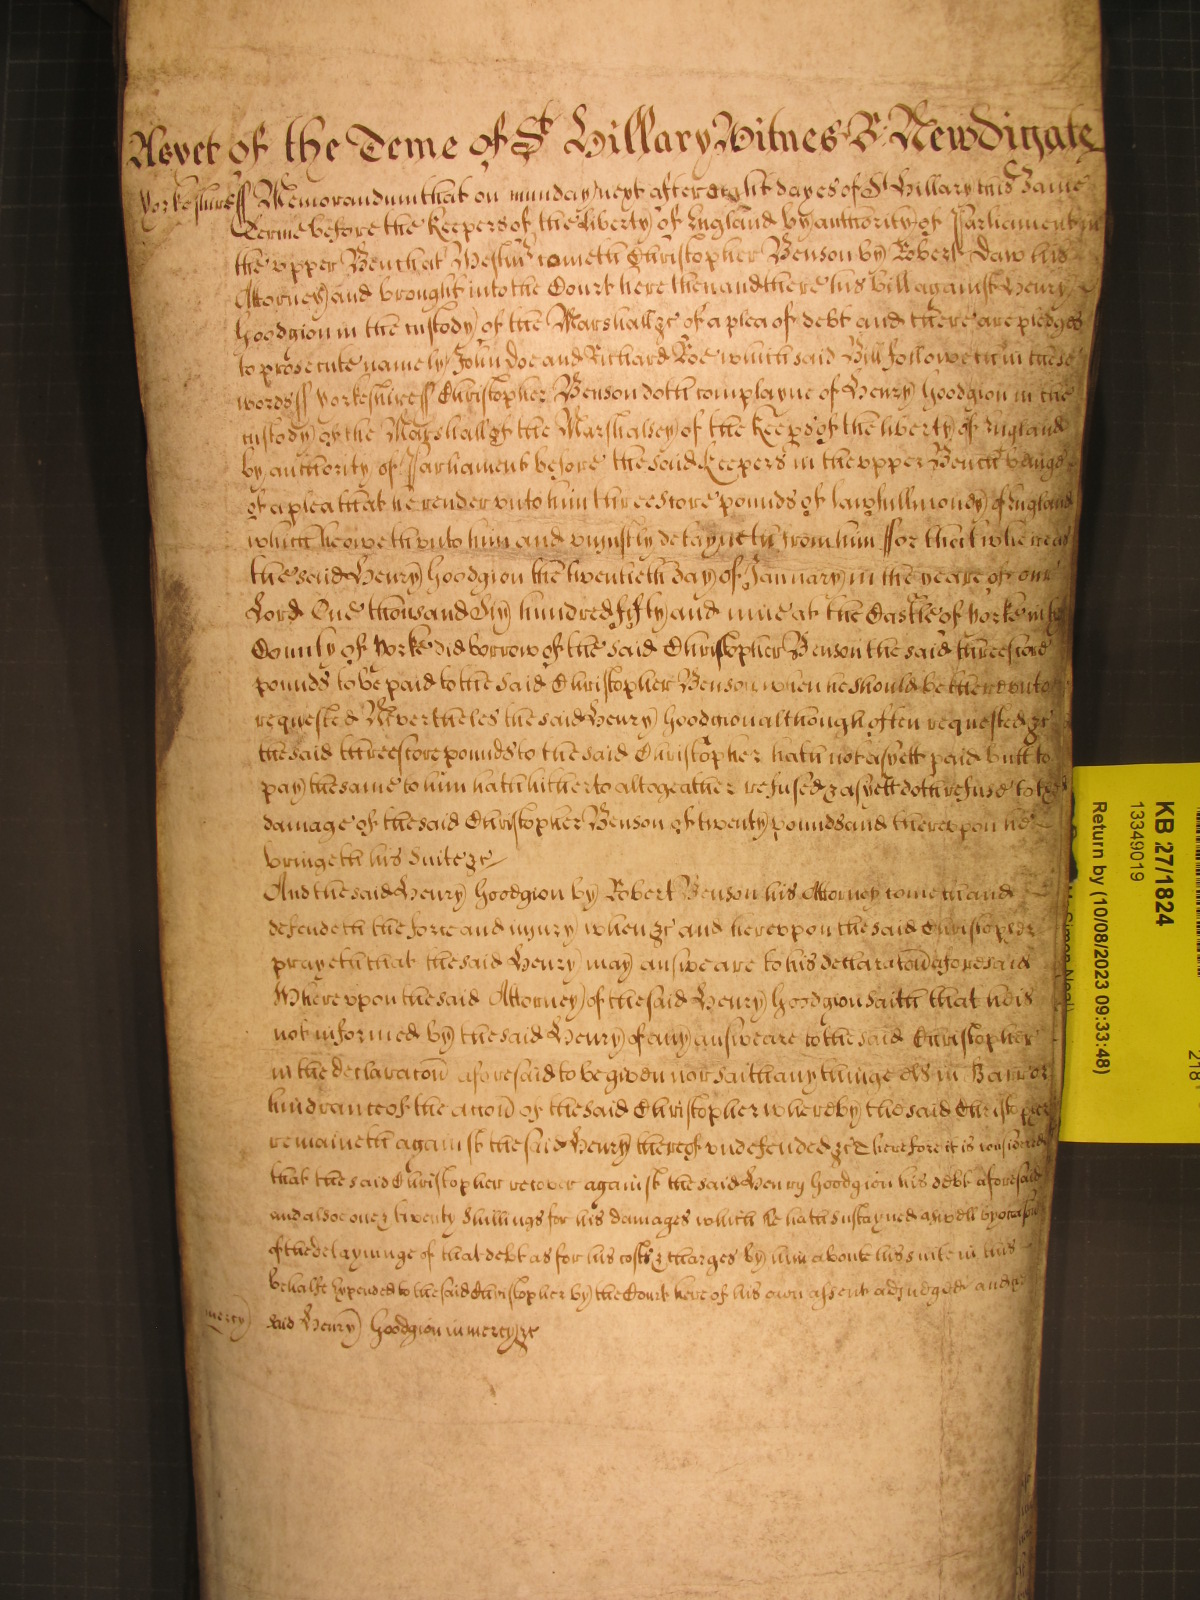 Aсyet of the Terme of St Hillary Witnes R Newdigate
Yorkeshire ss Memorandum that on munday next after eight dayes of St Hillary this same
Terme before the Keepers of the liberty of England by authority of Parliament in
the vpper Bench at Westmr cometh Christopher Benson by Robert Daw his
Attorney and brought into the Court here then and there his bill against Henry
Hoodgion in the custody of the Marshall &c of a plea of debt and there are pledges
to prosecute namely John Doe and Richard Roe which said Bill followeth in these
words ss Yorkeshire ss Christopher Benson doth complayne of Henry Hoodgion in the
custody of the Marshall of the Marshalsey of the Keepers of the liberty of England
by authority of Parliament before the said Keepers in the vpper Bench beinge
of a plea that he render vnto him threescore pounds of lawfull money of England
which he oweth vnto him and vniustly detayneth from him ffor that whereas
the said Henry Hoodgion the twentieth day of January in the yeare of our
Lord One thousand Six hundred fifty and nine at the Castle of Yorke in the
County of Yorke did borrow of the said Christopher Benson the said threescore
pounds to be paid to the said Christopher Benson when he should be therevnto
requested Neverthelesse the said Henry Hoodgion although often requested &c
the said threescore pounds to the said Christopher hath not as yett paid butt to
pay the same to him hath hitherto altogeather refused & as yett doth refuse to the
damage of the said Christopher Benson of twenty pounds and therevpon he
bringeth his suite &c
And the said Henry Hoodgion by Robert Benson his Attorney cometh and
defendeth the force and iniury when &c and herevpon the said Christopher
prayeth that the said Henry may answeare to his declaracon aforesaid
Wherevpon the said Attorney of the said Henry Hoodgion saith that he is
not informed by the said Henry of any answeare to the said Christopher
in the declaracon aforesaid to be given nor saith any thinge els in Barr or
hindrance of the accon of the said Christopher whereby the said Christopher
remaineth against the said Henry thereof vndefended &c Therefore it is considered
that the said Christopher recover against the said Henry Hoodgion his debt aforesaid
and alsoe one & twenty shillings for his damages which he hath sustayned aswell by occasion
of the delayninge of that debt as for his costs & charges by him about his suite in this
behalfe expended to the said Christopher by the Court here of his own assent adjudged and
mercy) said Henry Hoodgion in mercy &c
KB 27/1824
13349019
Return by (10/08/2023 09:33:48)